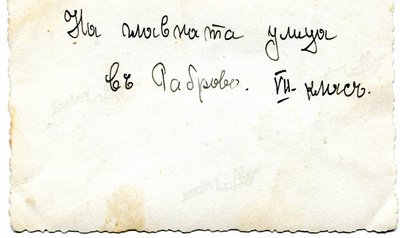 На главната улица
въ Габрово. VII-класъ.